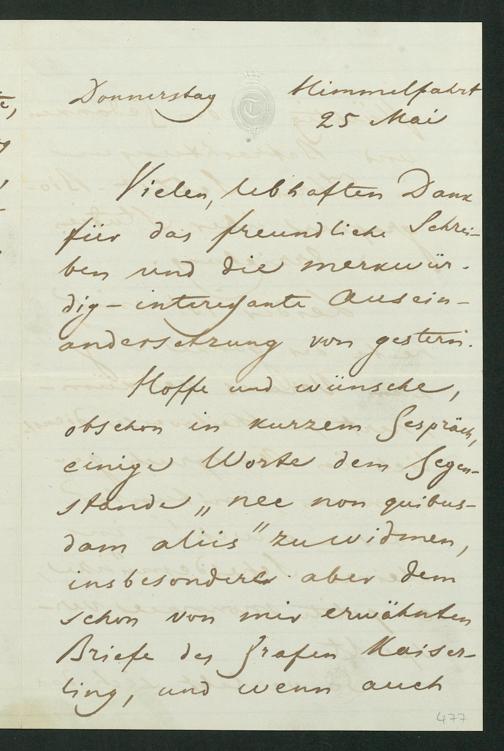 Donnerstag Himmelfahrt
25 Mai
Vielen, lebhaften Dank
für das freundliche Schrei-
ben und die merkwür-
dig-interessante Ausein-
andersetzung von gestern.
Hoffe und wünsche,
obschon in kurzem Gespräch,
einige Worte dem Gegen-
stande „nec non quibus-
dam aliis" zu widmen,
insbesondere aber dem
schon von mir erwähnten
Briefe des Grafen Kaiser-
ling, und wenn auch
477